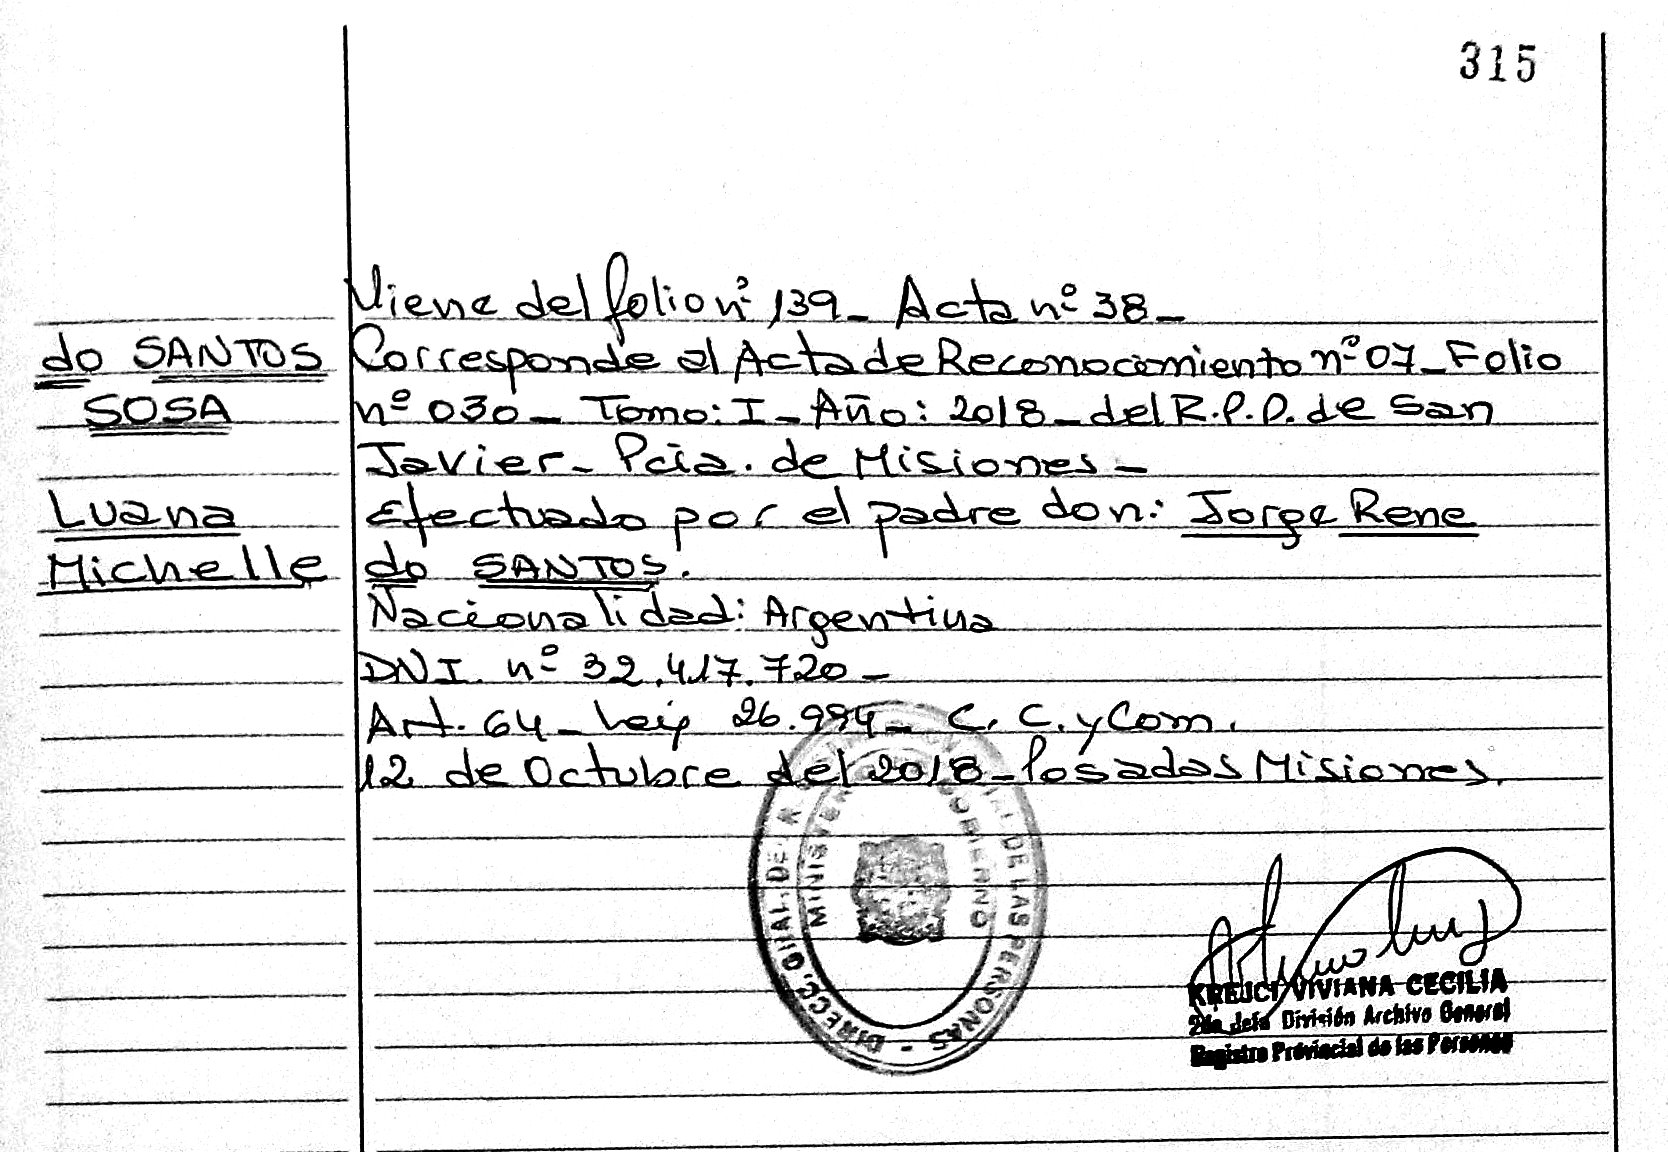 315
Viene del folio nº 139_ Acta nº 38_
do SANTOS
SOSA
Luana
Michelle
Corresponde al Acta de Reconocimiento nº 07_ Folio
nº 030_ Tomo: I_ Año: 2018_ del R.P.P. de San
Javier_ Pcia. de Misiones_
Efectuado por el padre don: Jorge Rene
do SANTOS.
Nacionalidad: Argentina
DNI. nº 32.417.720_
Art. 64_ Ley 26.994_ C. C. y Com.
12 de Octubre del 2018_ Posadas Misiones.
DIRECC. GRAL. DE DE LAS PERSONAS -
GOBIERNO
KREJCI VIVIANA CECILIA
2da Jefa División Archivo General
Registro Provincial de las Personas